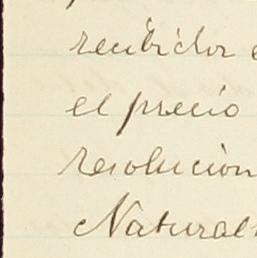 recibidor
el precio
resolucion
Natural